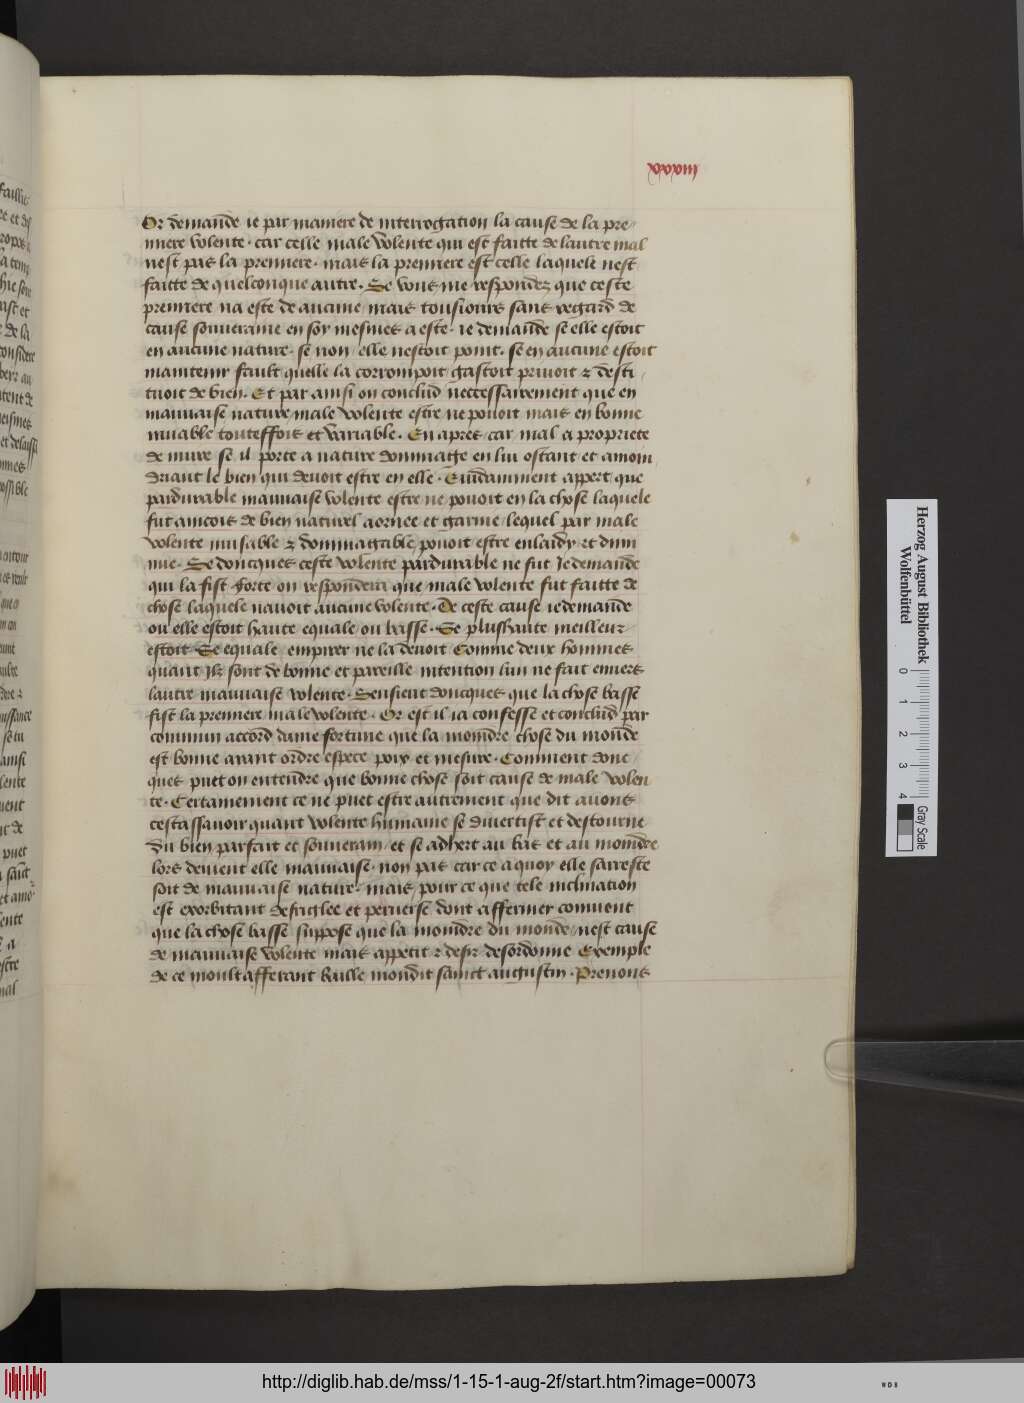 xxxviii
Or demande ie par maniere de interrogation la cause de la pre-
miere volente · car celle male volente qui est faitte de lautre mal
nest pas la premiere · mais la premiere est celle laquele nest
faitte de quelconque autre · Se vous me respondez que ceste
premiere na este de aucune mais tousiours sans regard de
cause souveraine en soy mesmes a este · ie demande se elle estoit
en aucune nature · se non elle nestoit point · se en aucune estoit
maintenir fault quelle la corrompoit gastoit privoit & desti
tuoit de bien · Et par ainsi on conclud neccessairement que en
mauvaise nature male volente estre ne povoit mais en bonne
muable touteffois et variable · En apres car mal a propriete
de nuire se il porte a nature dommaige en lui ostant et amoin
driant le bien qui devoit estre en elle · Evidamment appert que
pardurable mauvaise volente estre ne povoit en la chose laquele
fut aincois de bien naturel aornee et garnie lequel par male
volente nuisable & dommagable povoit estre enlaidy et dimi
nue · Se doncques ceste volente pardurable ne fut Ie demande
qui la fist forte on respondera que male volente fut faitte de
chose laquele navoit aucune volente · De ceste cause ie demande
ou elle estoit haute equale ou basse · Se plus haute meilleur
estoit · Se equale empirer ne la devoit Comme deux hommes
quant Ilz sont de bonne et pareille intention lun ne fait envers
lautre mauvaise volente · Sensieut doncques que la chose basse
fist la premiere male volente · Or est il ia confesse et conclud par
commun accord dame fortune que la moindre chose du monde
est bonne ayant ordre espece poix et mesure · Comment donc
ques puet on entendre que bonne chose soit cause de male volen
te · Certainement ce ne puet estre autrement que dit avons
cestassavoir quant volente humaine se divertist et destourne
du bien parfait et souverain et se adhert au bas et au moindre
lors devient elle mauvaise · non pas car ce a quoy elle sarreste
soit de mauvaise nature · mais pour ce que tele inclination
est exorbitant desriglee et perverse dont affermer convient
que la chose basse suppose que la moindre du monde nest cause
de mauvaise volente mais appetit & desir desordonne Exemple
de ce moult afferant Baille mondit saint augustin · Prenons
Herzog August Bibliothek
Wolfenbüttel
0 1 2 3 4
Gray Scale
http://diglib.hab.de/mss/1-15-1-aug-2f/start.htm?image=00073